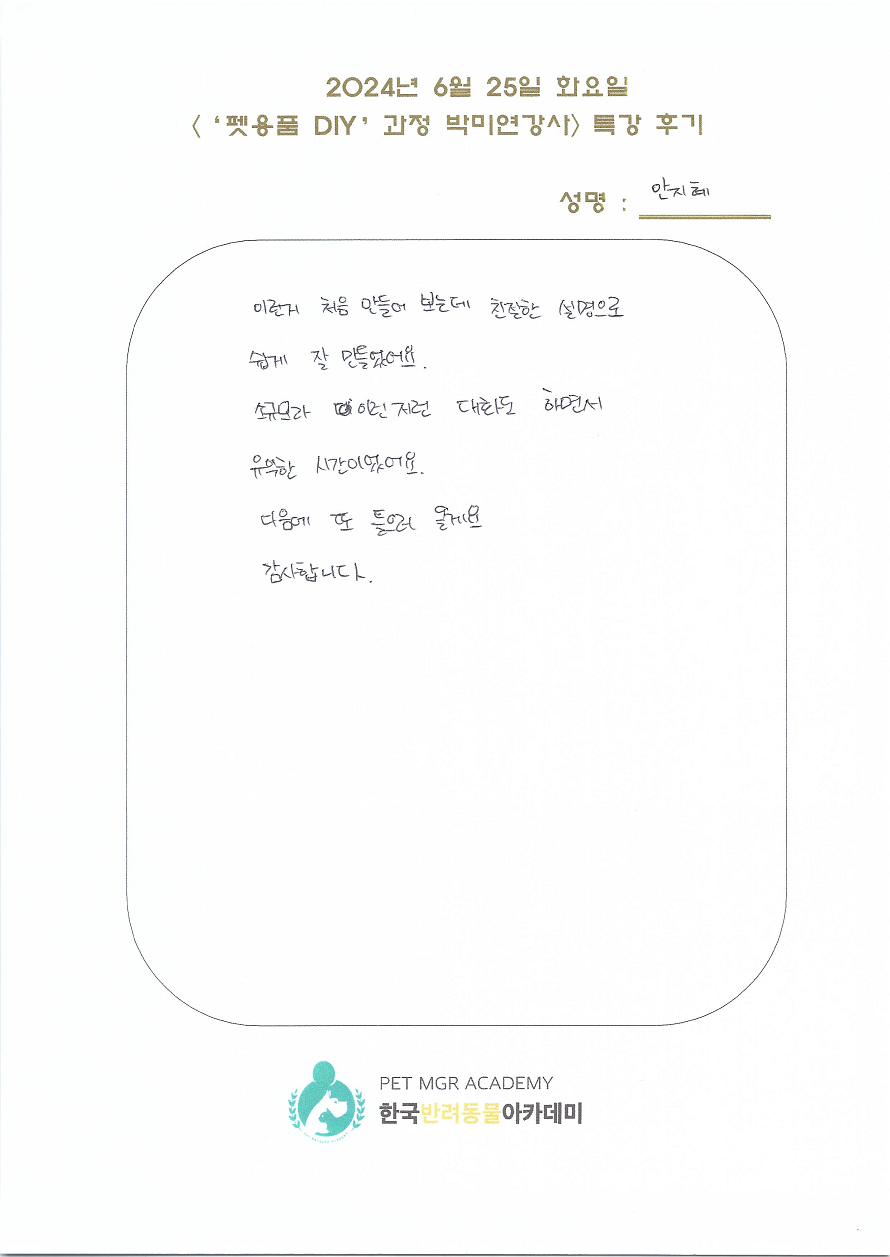 2024년 6월 25일 화요일
< '펫용품 DIY' 과정 박미연강사> 특강 후기
성명 : 안지혜
이런거 처음 만들어 보는데 친절한 설명으로
쉽게 잘 만들었어요.
소규모라 이런저런 대화도 하면서
유익한 시간이었어요.
다음에 또 들으러 올게요
감사합니다.
PET MGR ACADEMY
한국반려동물아카데미